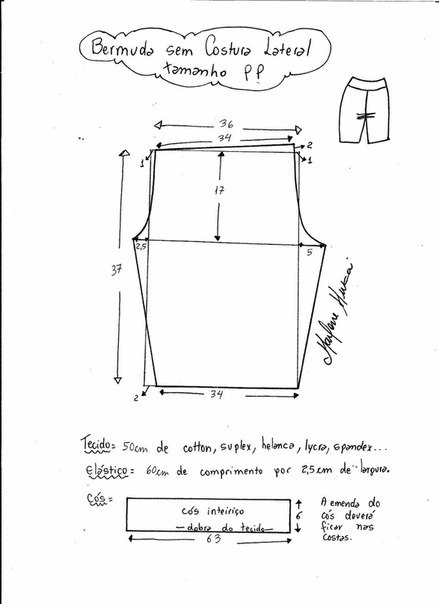 Bermuda sem Costura Lateral
tamanho PP
36
34
2
1
1
17
2,5
5
37
2
34
Marlene Mukai
Tecido = 50cm de cotton, suplex, helanca, lycra, spandex...
Elástico = 60cm de comprimento por 2,5cm de largura.
Cós =
cós inteiriço
dobra do tecido
63
6
A emenda do
cós deverá
ficar nas
costas.